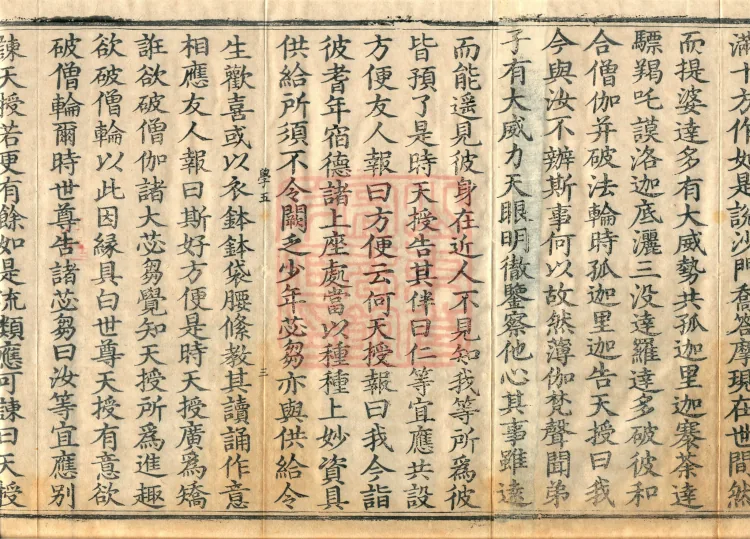 滿十方作如是說沙門喬答摩現在世間然
而提婆達多有大威勢共孤迦里迦褰荼達
驃羯吒謨洛迦底灑三没達羅達多破彼和
合僧伽并破法輪時孤迦里迦告天授曰我
今與汝不辦斯事何以故然薄伽梵聲聞弟
子有大威力天眼明徹鑒察他心其事雖遠
而能遥見彼身在近人不見知我等所爲彼
皆預了是時天授告其伴曰仁等宜應共設
方便友人報曰方便云何天授報曰我今詣
彼耆年宿德諸上座處當以種種上妙資具
供給所須不令闕乏少年苾芻亦與供給令
學五 三
生歡喜或以衣鉢鉢袋腰絛教其讀誦作意
相應友人報曰斯好方便是時天授廣爲矯
誑欲破僧伽諸大苾芻覺知天授所爲進趣
欲破僧輪以此因緣具白世尊天授有意欲
破僧輪爾時世尊告諸苾芻曰汝等宜應別
諫天授若更有餘如是流類應可諫曰天授